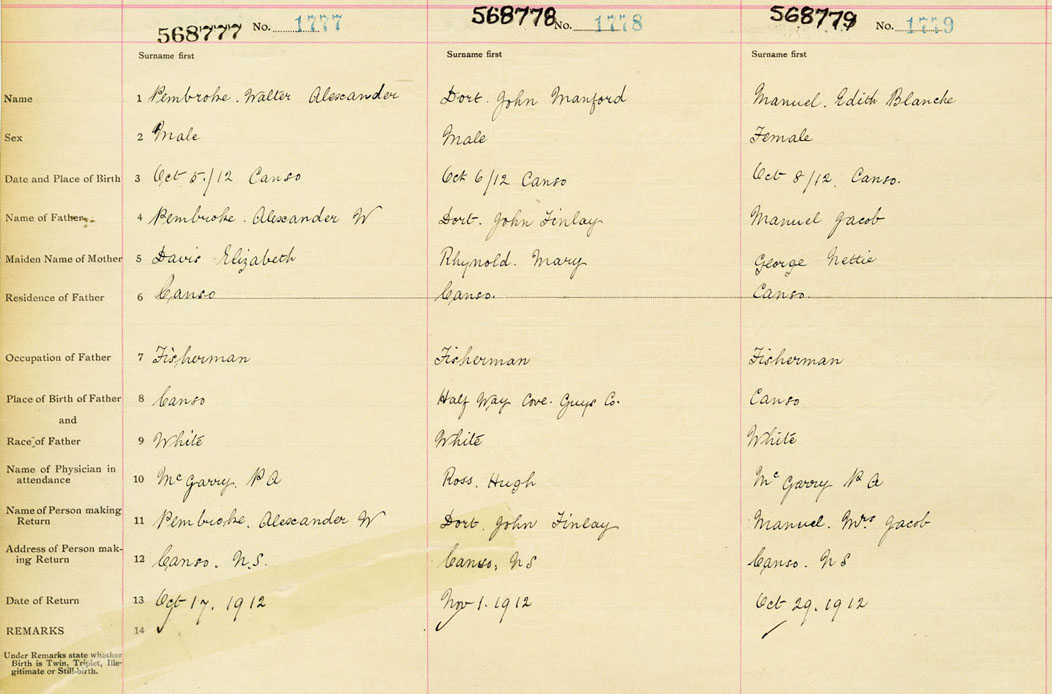 568777 No. 1777 568778 No. 1778 568779 No. 1779
Surname first Surname first Surname first
Name 1 Pembroke. Walter Alexander Dort. John Manford Manuel. Edith Blanche
Sex 2 Male Male Female
Date and Place of Birth 3 Oct 5/12 Canso Oct 6/12 Canso Oct 8/12. Canso.
Name of Father 4 Pembroke. Alexander W Dort. John Finlay Manuel Jacob
Maiden Name of Mother 5 Davis Elizabeth Rhynold. Mary George Nettie
Residence of Father 6 Canso Canso. Canso.
Occupation of Father 7 Fisherman Fisherman Fisherman
Place of Birth of Father 8 Canso Half Way Cove. Guys Co. Canso
and
Race of Father 9 White White White
Name of Physician in
attendance 10 McGarry. P A Ross. Hugh McGarry P A
Name of Person making
Return 11 Pembroke. Alexander W Dort. John Finlay Manuel. Mrs Jacob
Address of Person mak-
ing Return 12 Canso. N.S. Canso, N S Canso. N S
Date of Return 13 Oct 17. 1912 Nov 1. 1912 Oct 29. 1912
REMARKS 14
Under Remarks state whether
Birth is Twin, Triplet, Ille-
gitimate or Still-birth.